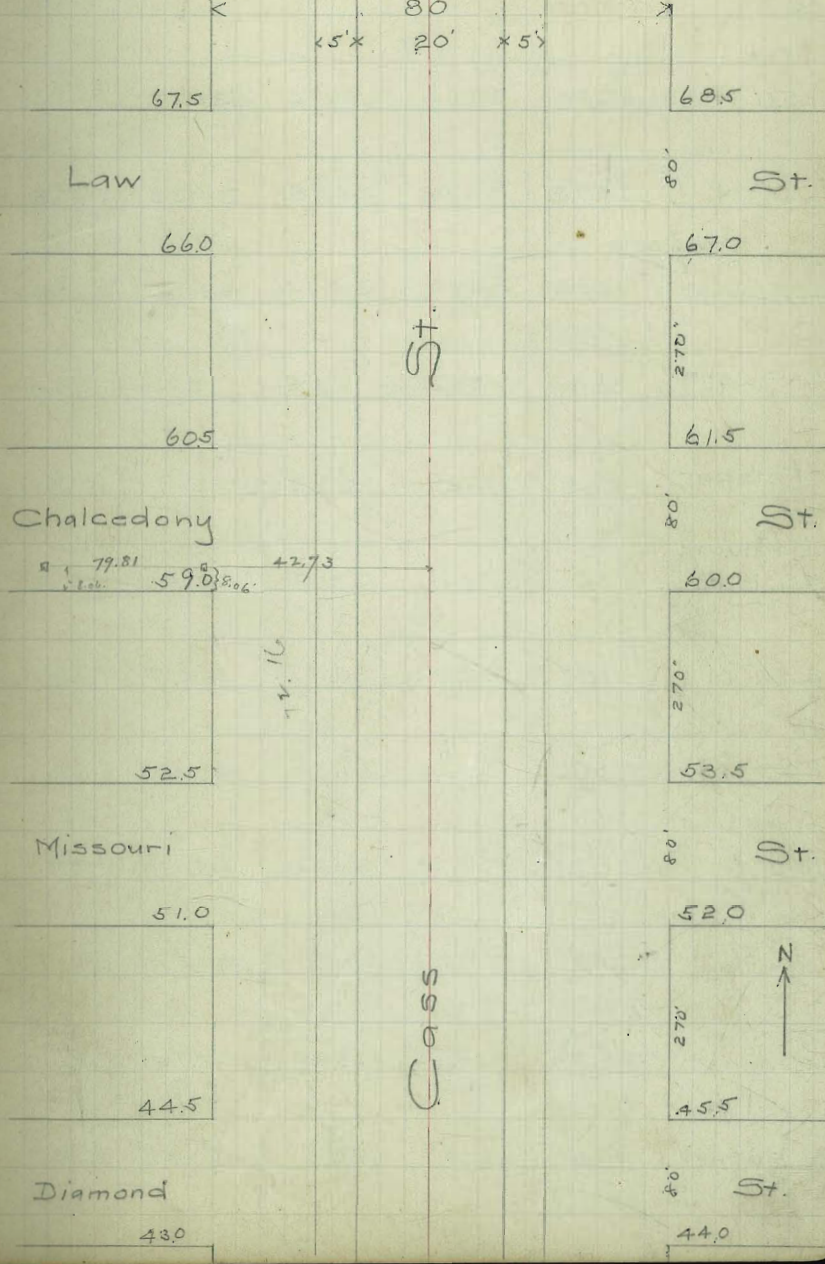 80
5' 20' 5'
67.5 68.5
Law 80' St.
66.0 67.0
St. 270'
60.5 61.5
Chalcedony 80' St.
79.81 42.73
8.06 59.0 8.06 60.0
270'
52.5 53.5
Missouri 80' St.
51.0 52.0
N
Cass 270'
44.5 45.5
Diamond 80' St.
43.0 44.0